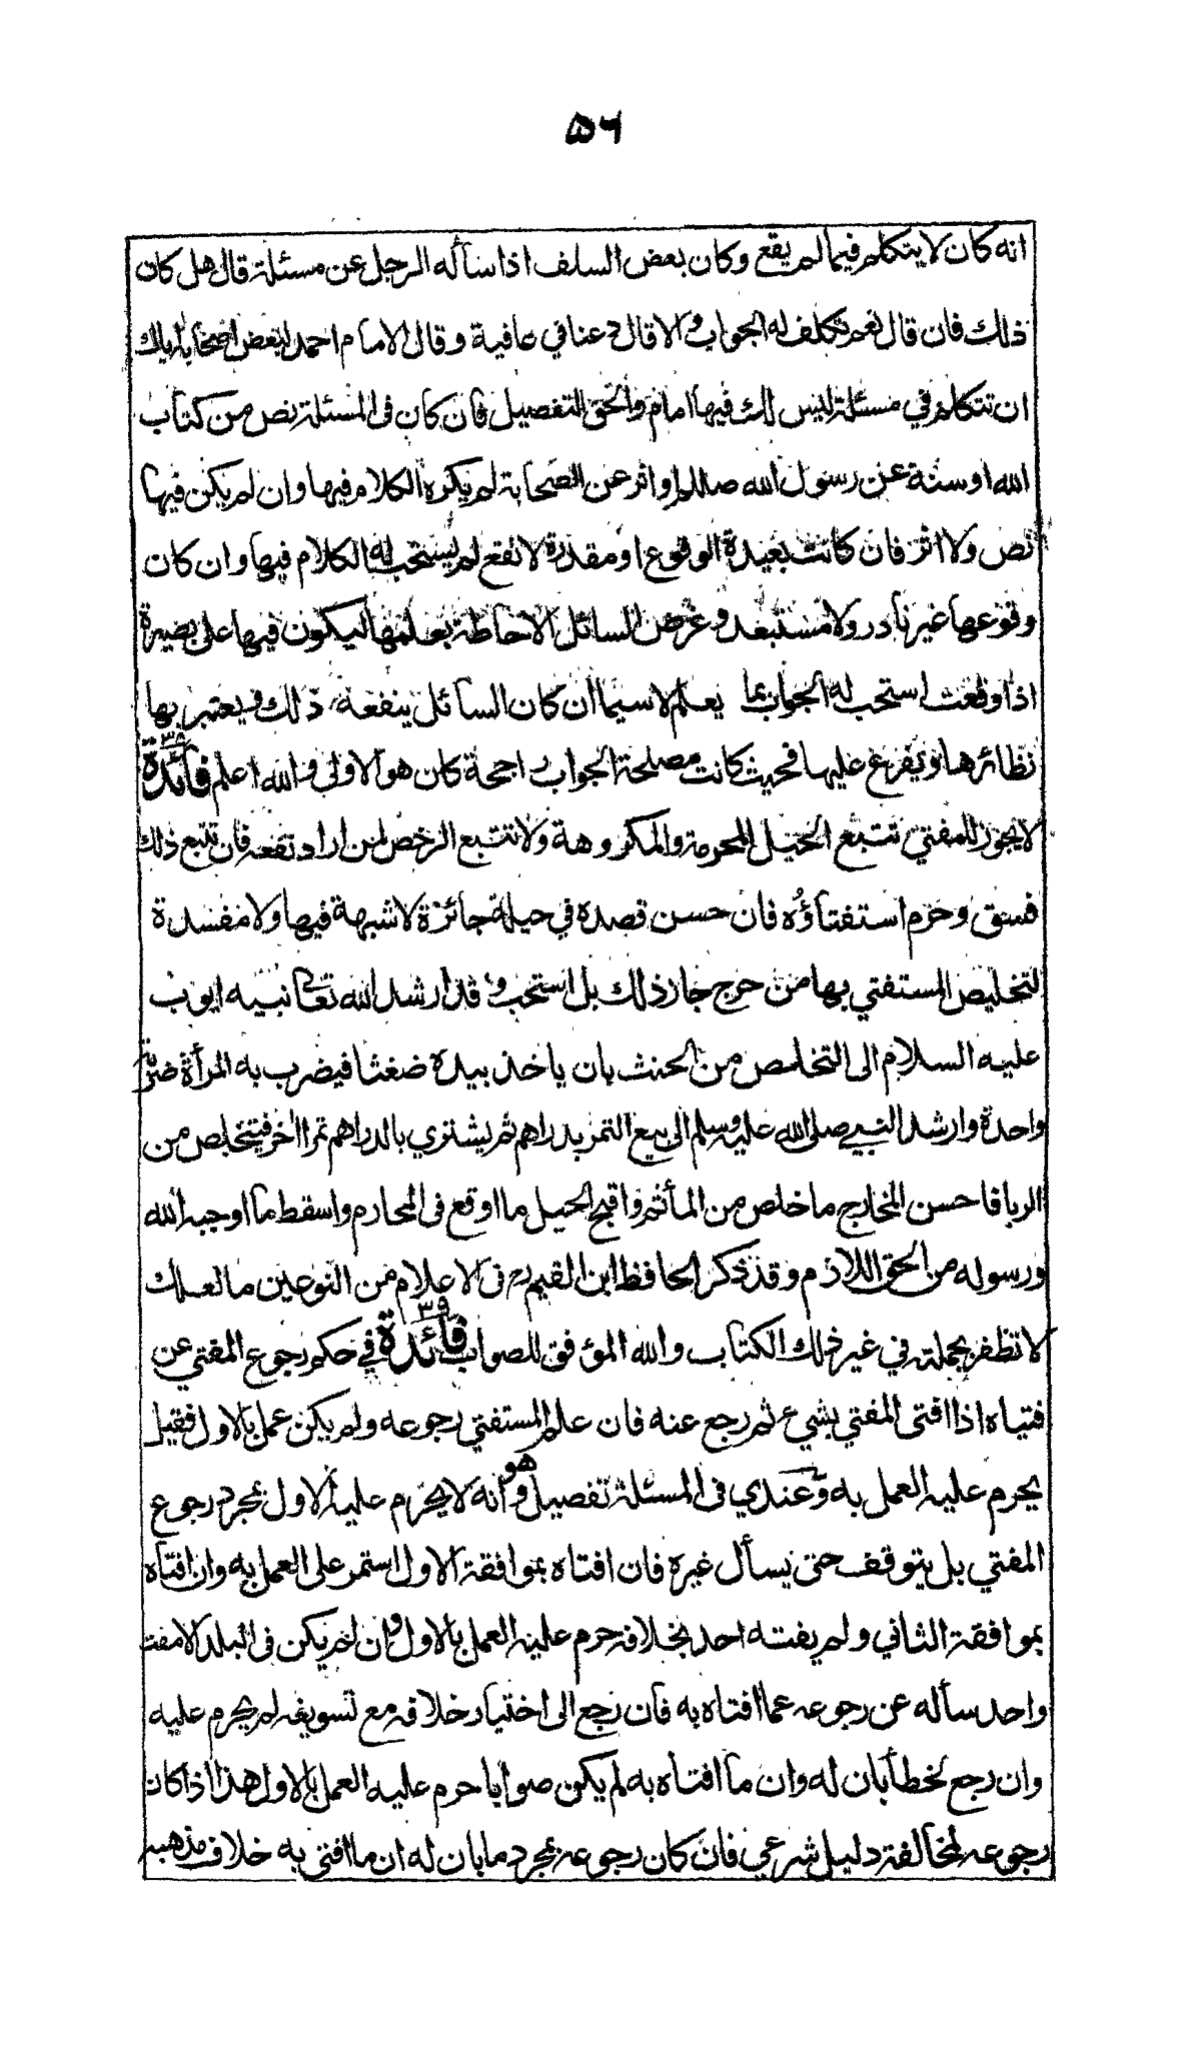 ٥٦
انه كان لا يتكلم فيما لم يقع وكان بعض السلف اذا سأله الرجل عن مسئلة قال هل كان
ذلك فان قال نعم تكلف له الجواب والا قال دعنا في عافية وقال الامام احمد لبعض اصحابه اياك
ان تتكلم في مسئلة ليس لك فيها امام والحق التفصيل فان كان فى المسئلة نص من كتاب
الله او سنة عن رسول الله صللم او اثر عن الصحابة لم يكره الكلام فيها وان لم يكن فيها
نص ولا اثر فان كانت بعيدة الوقوع او مقدرة لا تقع لم يستحب له الكلام فيها وان كان
وقوعها غير نادر ولا مستبعد وغرض السائل الاحاطة بعلمها ليكون فيها على بصيرة
اذا وقعت استحب له الجواب بما يعلم لا سيما ان كان السائل ينفعه ذلك ويعتبر بها
نظائرها ويفرغ عليها فحيث كانت مصلحة الجواب راجحة كان هو الاولى والله اعلم فائدة ٣٨
لا يجوز للمفتي تتبع الحيل المحرمة والمكروهة ولا تتبع الرخص لمن اراد نفعه فان تتبع ذلك
فسق وحرم استفتاؤه فان حسن قصده في حيلة جائزة لا شبهة فيها ولا مفسدة
لتخليص المستفتي بها من حرج جاز ذلك بل استحب وقد ارشد الله تعالى نبيه ايوب
عليه السلام الى التخلص من الحنث بان ياخذ بيده ضغثا فيضرب به المرأة ضربة
واحدة وارشد النبي صلى الله عليه وسلم الى بيع التمر بدراهم ثم يشتري بالدراهم تمرا اخر فيتخلص من
الربا فاحسن المخارج ما خلص من المأثم واقبح الحيل ما اوقع فى المحارم واسقط ما اوجبه الله
ورسوله من الحق اللازم وقد ذكر الحافظ ابن القيم رح فى الاعلام من النوعين ما لعلك
لا تظفر بجملته في غير ذلك الكتاب والله الموفق للصواب فائدة ٣٩ في حكم رجوع المفتي عن
فتياه اذا افتى المفتي بشيء ثم رجع عنه فان علم المستفتي رجوعه ولم يكن عمل بالاول فقيل
يحرم عليه العمل به وعندي فى المسئلة تفصيل وهو انه لا يحرم عليه الاول بمجرد رجوع
المفتي بل يتوقف حتى يسأل غيره فان افتاه بموافقة الاول استمر على العمل به وان افتاه
بموافقة الثاني ولم يفته احد بخلافه حرم عليه العمل بالاول وان لم يكن فى البلد الا مفت
واحد سأله عن رجوعه عما افتاه به فان رجع الى اختيار خلافه مع تسويغه لم يحرم عليه
وان رجع لخطأ بان له وان ما افتاه به لم يكن صوابا حرم عليه العمل بالاول هذا اذا كان
رجوعه لمخالفة دليل شرعي فان كان رجوعه بمجرد ما بان له ان ما افتى به خلاف مذهبه